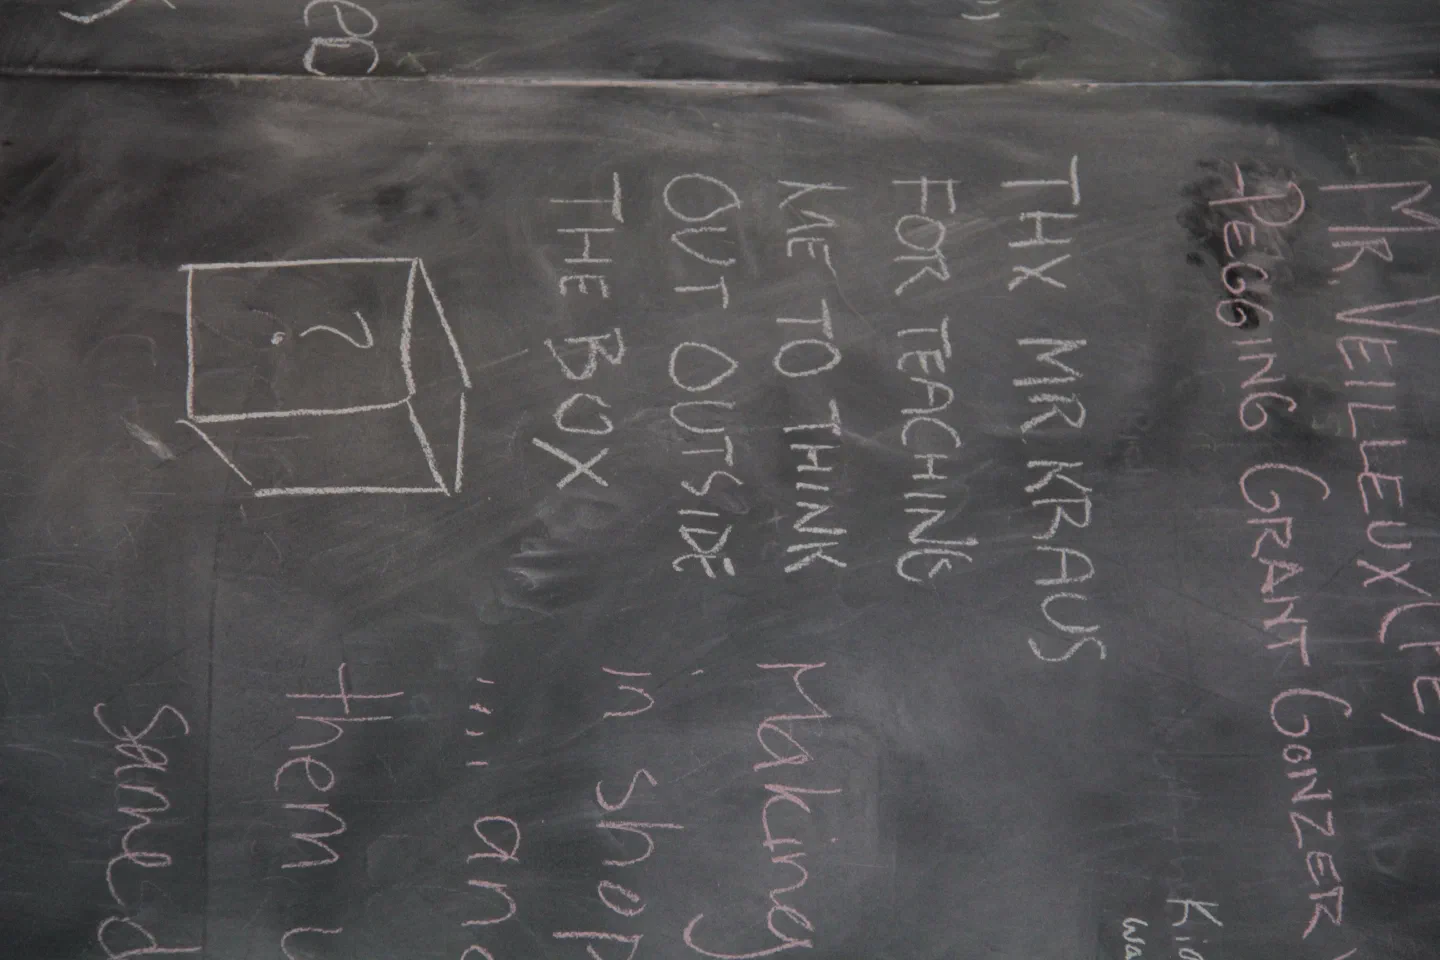 MR. VEILLEUX (PE)
PEGGING GRANT GONZER
THX MR. KRAUS
FOR TEACHING
ME TO THINK
OUT OUTSIDE
THE BOX
?
Making
in shop
... and
them
same
Kid
wa